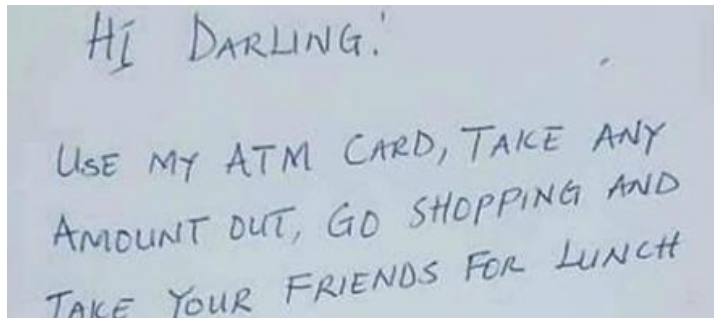 HI DARLING!
USE MY ATM CARD, TAKE ANY
AMOUNT OUT, GO SHOPPING AND
TAKE YOUR FRIENDS FOR LUNCH